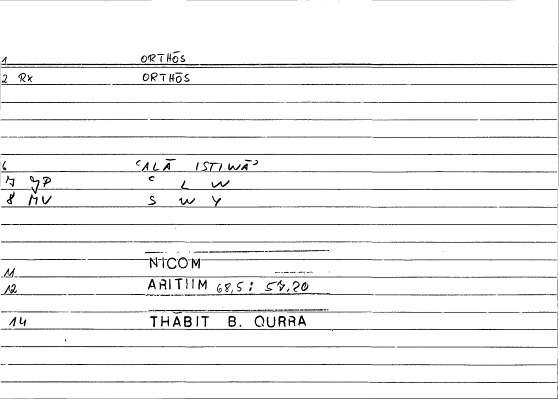 1 ORTHŌS
2 Rx ORTHŌS
6 ʿALĀ ISTIWĀʾ
7 JP ʿ L W
8 MV S W Y
11 NICOM
12 ARITHM 68,5; 57,20
14 THABIT B. QURRA